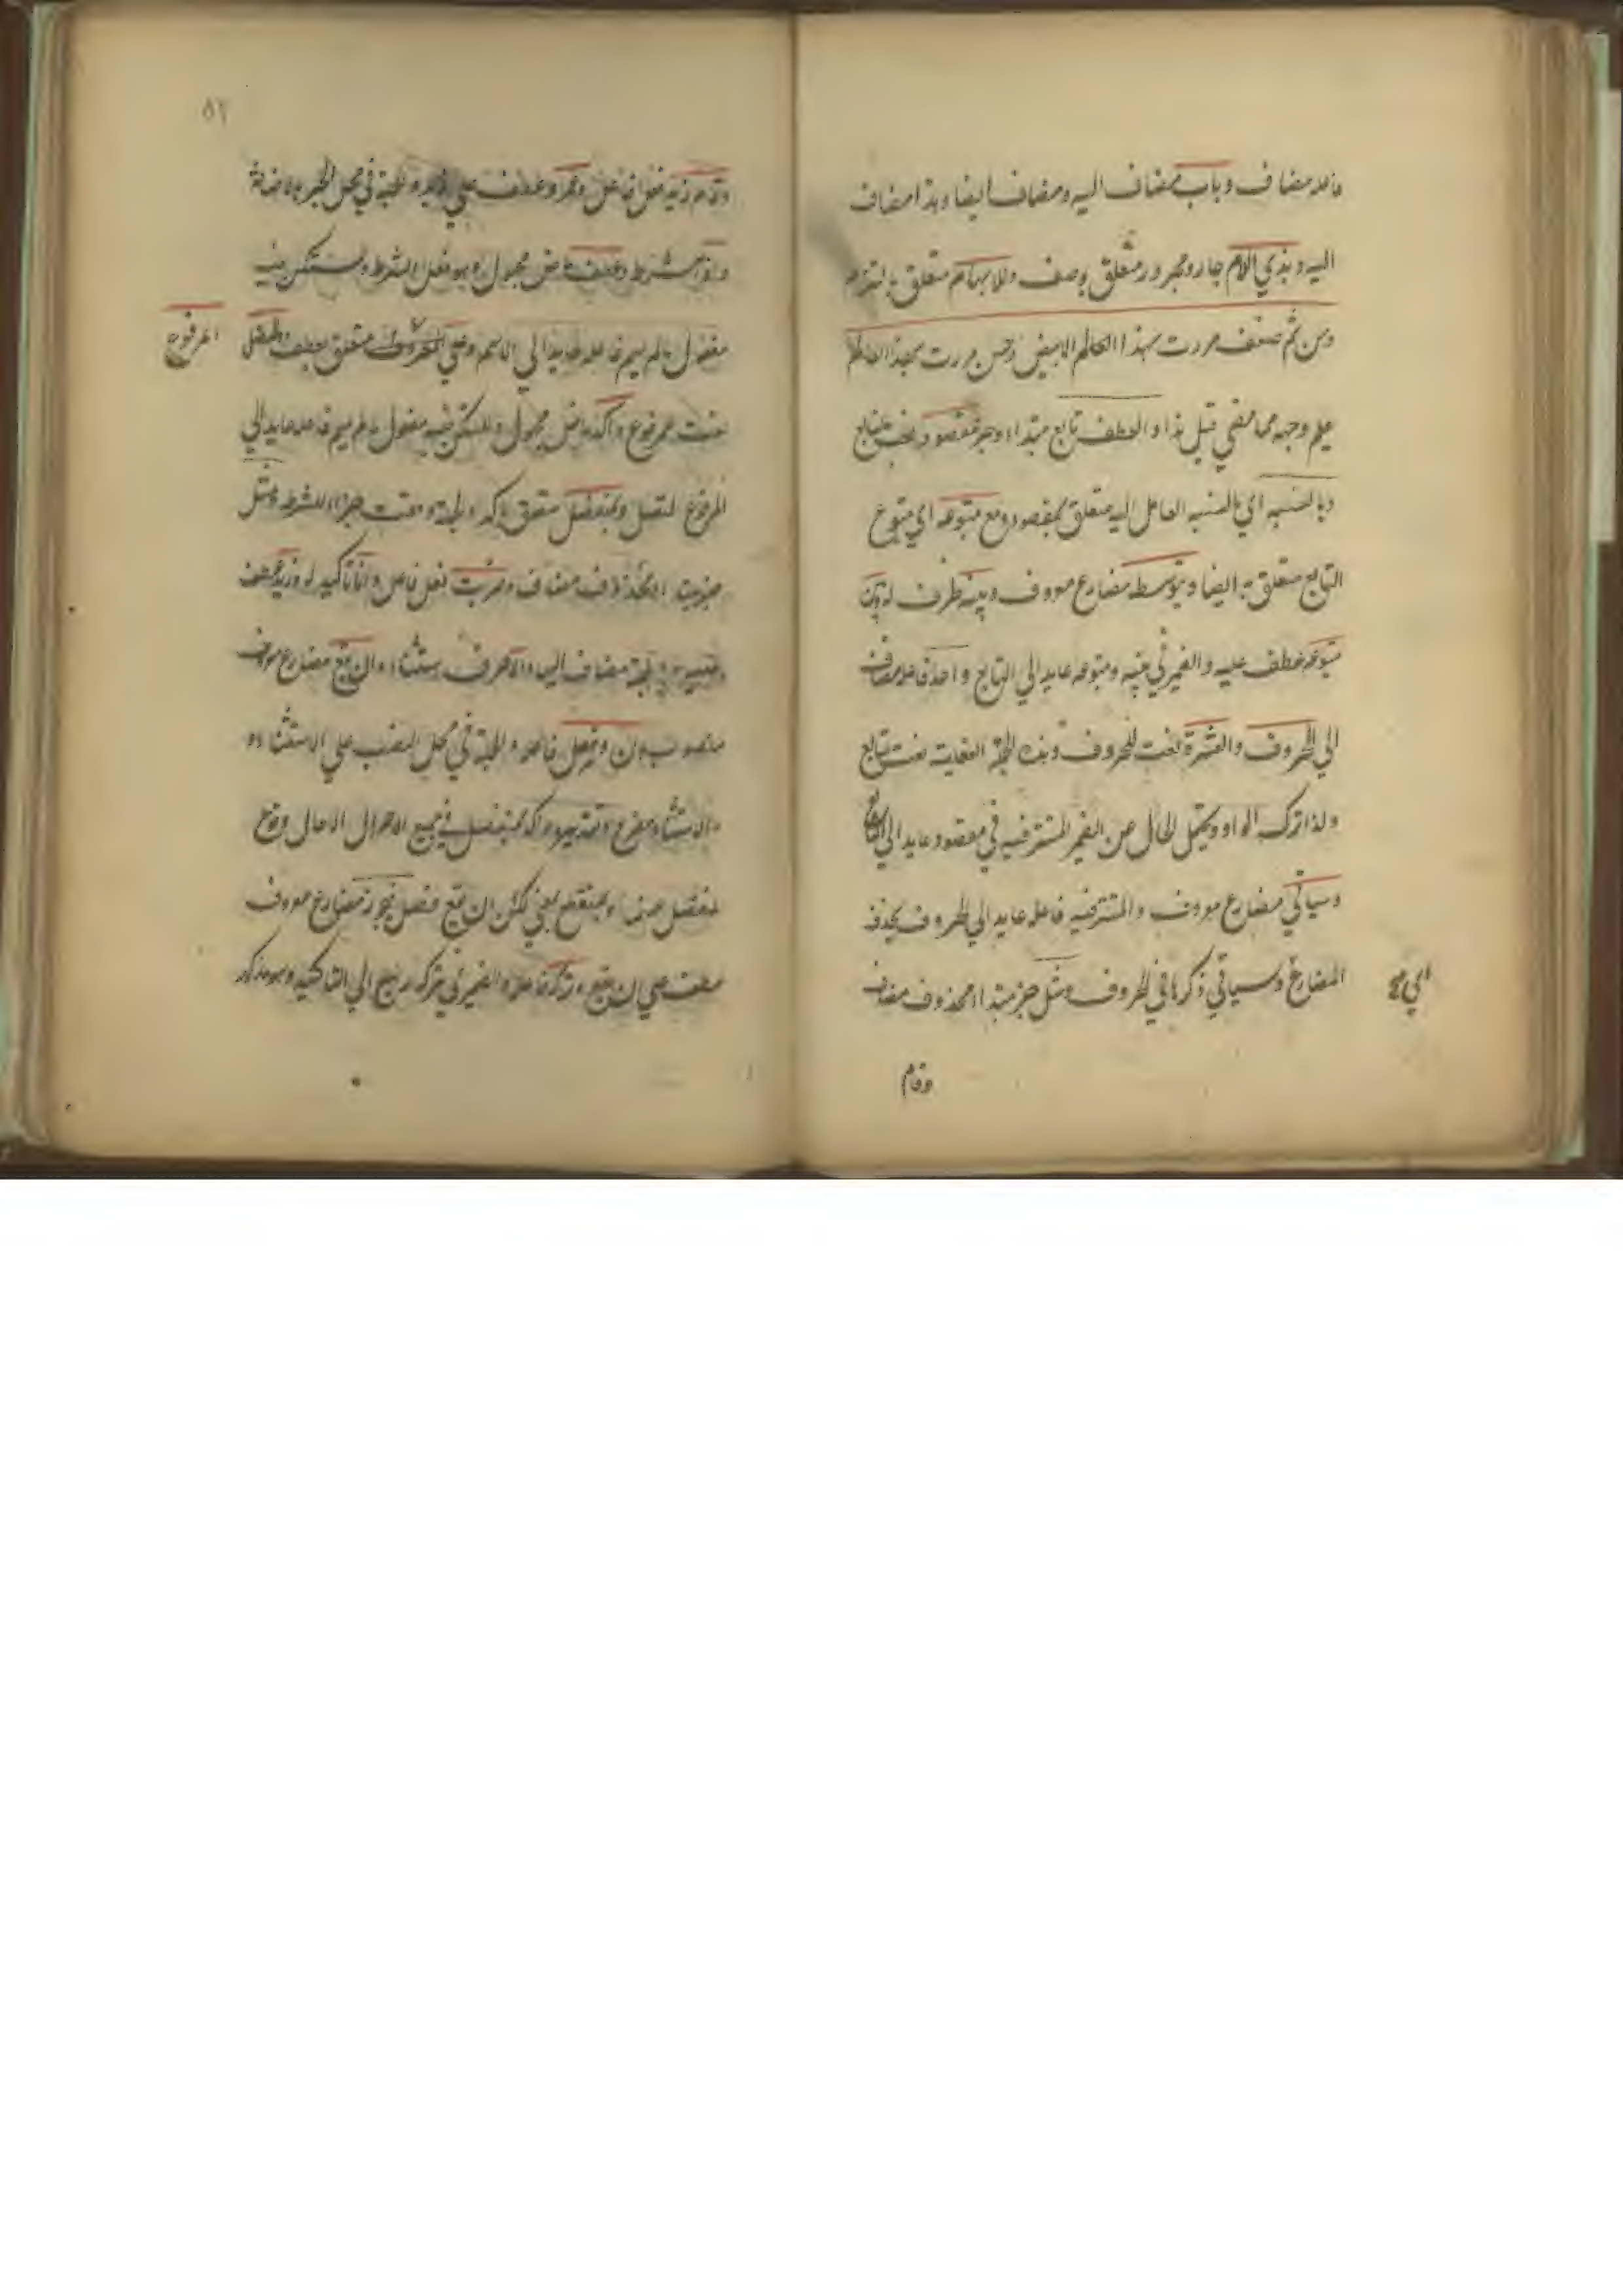 فاعله مضاف وباب مضاف اليه ومضاف ايضا وهذا مضاف
اليه وبذي اللام جار ومجرور متعلق بوصف وللابهام متعلق بالتزم
ومن ثم ضعف مررت بهذا العالم الابيض وحسن مررت بهذا العالم
علم وجهه مما مضى قبل هذا والعطف تابع مبتداء وخبر مقصود نعت تابع
وبالنسبه اي بالنسبه العامل اليه متعلق بمقصود ومع متبوعه اي متبوع
التابع متعلق به ايضا ويتوسط مضارع معروف وبينه ظرف له وبين
متبوعه عطف عليه والضمير في بينه ومتبوعه عايد الي التابع واحد فاعله مضاف
الي الحروف والعشرة نعت للحروف وهذه الجملة الفعلية نعت تابع
ولذا ترك الواو ويحتمل الحال عن الضمير المستتر فيه في مقصود عايد الي التابع
وسياتي مضارع معروف والمستتر فيه فاعله عايد الي الحروف بحذف
المضاف وسياتي ذكرها في الحروف ومثل خبر مبتداء محذوف مضاف
اي هي
وقام
٥٢
وقام زيد فعل فاعل وعمرو عطف علي زيد والجملة في محل الجر باضافة
واذا شرط وعطف ماض مجهول وهو فعل الشرط ومستكن فيه
مفعول ما لم يسم فاعله عايد الي الاسم وعلي المرفوع متعلق بعطف والمتصل
المرفوع
نعت مرفوع واكد ماض مجهول والمستكن فيه مفعول ما لم يسم فاعله عايد الي
المرفوع المتصل وبمنفصل متعلق باكد والجملة وقعت جزاء للشرط ومثل
خبر مبتداء محذوف مضاف وضربت فعل فاعل وانا تاكيد له وزيد عطف
مضاف اليها والا حرف استثناء وان يقع مضارع معروف
منصوب بان وفصل فاعله والجملة في محل النصب علي الاستثناء
والاستثناء مفرغ اكد بمنفصل في جميع الاحوال الا حال وقوع
ان يقع فصل فيجوز مضارع معروف
عطف علي ان يقع وتركه فاعله والضمير في تركه راجع الي التاكيد وهو مذكور